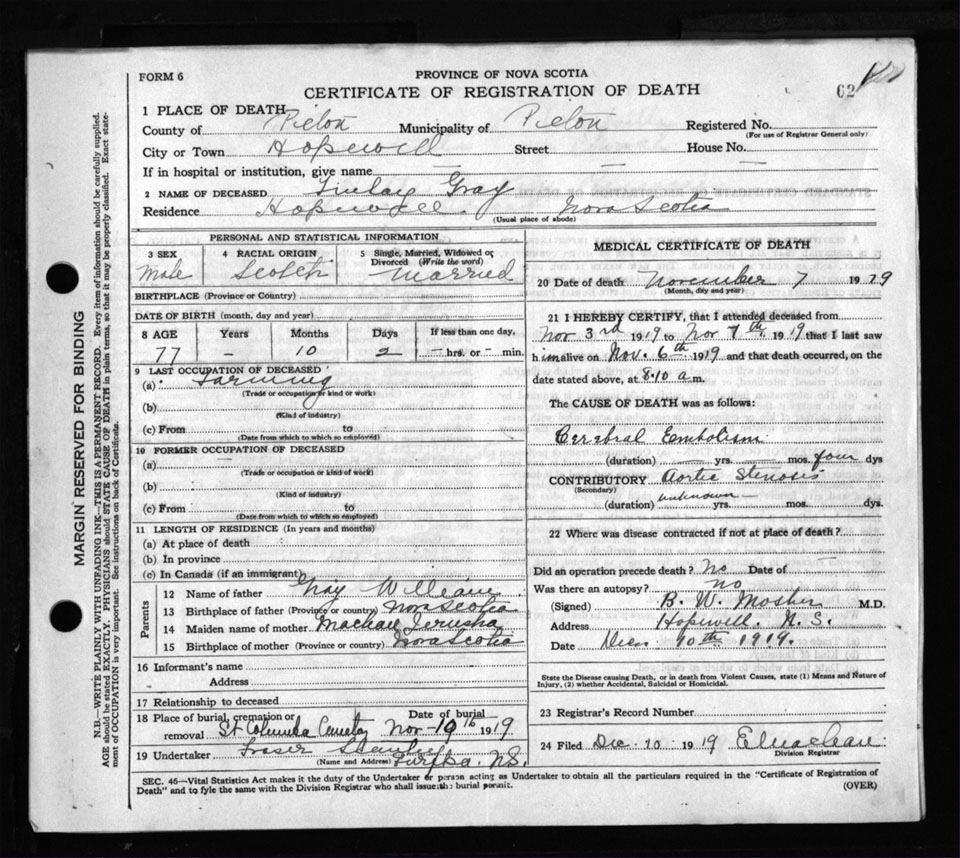 FORM 6
PROVINCE OF NOVA SCOTIA
CERTIFICATE OF REGISTRATION OF DEATH
62
1 PLACE OF DEATH
County of Pictou Municipality of Pictou Registered No.
(For use of Registrar General only)
City or Town Hopewell Street — House No. —
If in hospital or institution, give name —
2 NAME OF DECEASED Finlay Gray
Residence Hopewell. Nova Scotia
(Usual place of abode)
PERSONAL AND STATISTICAL INFORMATION
3 SEX Male
4 RACIAL ORIGIN Scotch
5 Single, Married, Widowed or Divorced (Write the word) Married
BIRTHPLACE (Province or Country)
DATE OF BIRTH (month, day and year)
8 AGE Years Months Days If less than one day,
77 – 10 2 – hrs. or – min.
9 LAST OCCUPATION OF DECEASED
(a) Farming
(Trade or occupation or kind or work)
(b)
(Kind of industry)
(c) From to
(Date from which to which so employed)
10 FORMER OCCUPATION OF DECEASED
(a) —
(Trade or occupation or kind of work)
(b)
(Kind of industry)
(c) From to
(Date from which to which so employed)
11 LENGTH OF RESIDENCE (In years and months)
(a) At place of death
(b) In province
(c) In Canada (if an immigrant)
Parents
12 Name of father Gray William
13 Birthplace of father (Province or country) Nova Scotia
14 Maiden name of mother Jerusha
15 Birthplace of mother (Province or country) Nova Scotia
16 Informant's name
Address
17 Relationship to deceased
18 Place of burial, cremation or removal St Columba Cemetery Date of burial Nov 10th 1919
19 Undertaker Fraser
(Name and Address) Eureka. N.S.
MEDICAL CERTIFICATE OF DEATH
20 Date of death November 7 1919
(Month, day and year)
21 I HEREBY CERTIFY, that I attended deceased from
Nov 3rd 1919 to Nov 7th 1919 that I last saw
him alive on Nov. 6th 1919 and that death occurred, on the
date stated above, at 8.10 a.m.
The CAUSE OF DEATH was as follows:
Cerebral Embolism
(duration) — yrs. — mos. four dys
CONTRIBUTORY Aortic Stenosis
(Secondary)
(duration) unknown — yrs. mos. dys.
22 Where was disease contracted if not at place of death? —
Did an operation precede death? No Date of —
Was there an autopsy? no
(Signed) B. W. Mosher M.D.
Address Hopewell. N.S.
Date Dec. 10th 1919.
State the Disease causing Death, or in death from Violent Causes, state (1) Means and Nature of
Injury, (2) whether Accidental, Suicidal or Homicidal.
23 Registrar's Record Number
24 Filed Dec 10 1919 E Maclean
Division Registrar
SEC. 46—Vital Statistics Act makes it the duty of the Undertaker or person acting as Undertaker to obtain all the particulars required in the "Certificate of Registration of
Death" and to fyle the same with the Division Registrar who shall issue the burial permit. (OVER)
MARGIN RESERVED FOR BINDING
N.B.—WRITE PLAINLY WITH UNFADING INK—THIS IS A PERMANENT RECORD. Every item of information should be carefully supplied.
AGE should be stated EXACTLY. PHYSICIANS should STATE CAUSE OF DEATH in plain terms, so that it may be properly classified. Exact state-
ment of OCCUPATION is very important. See instructions on back of Certificate.